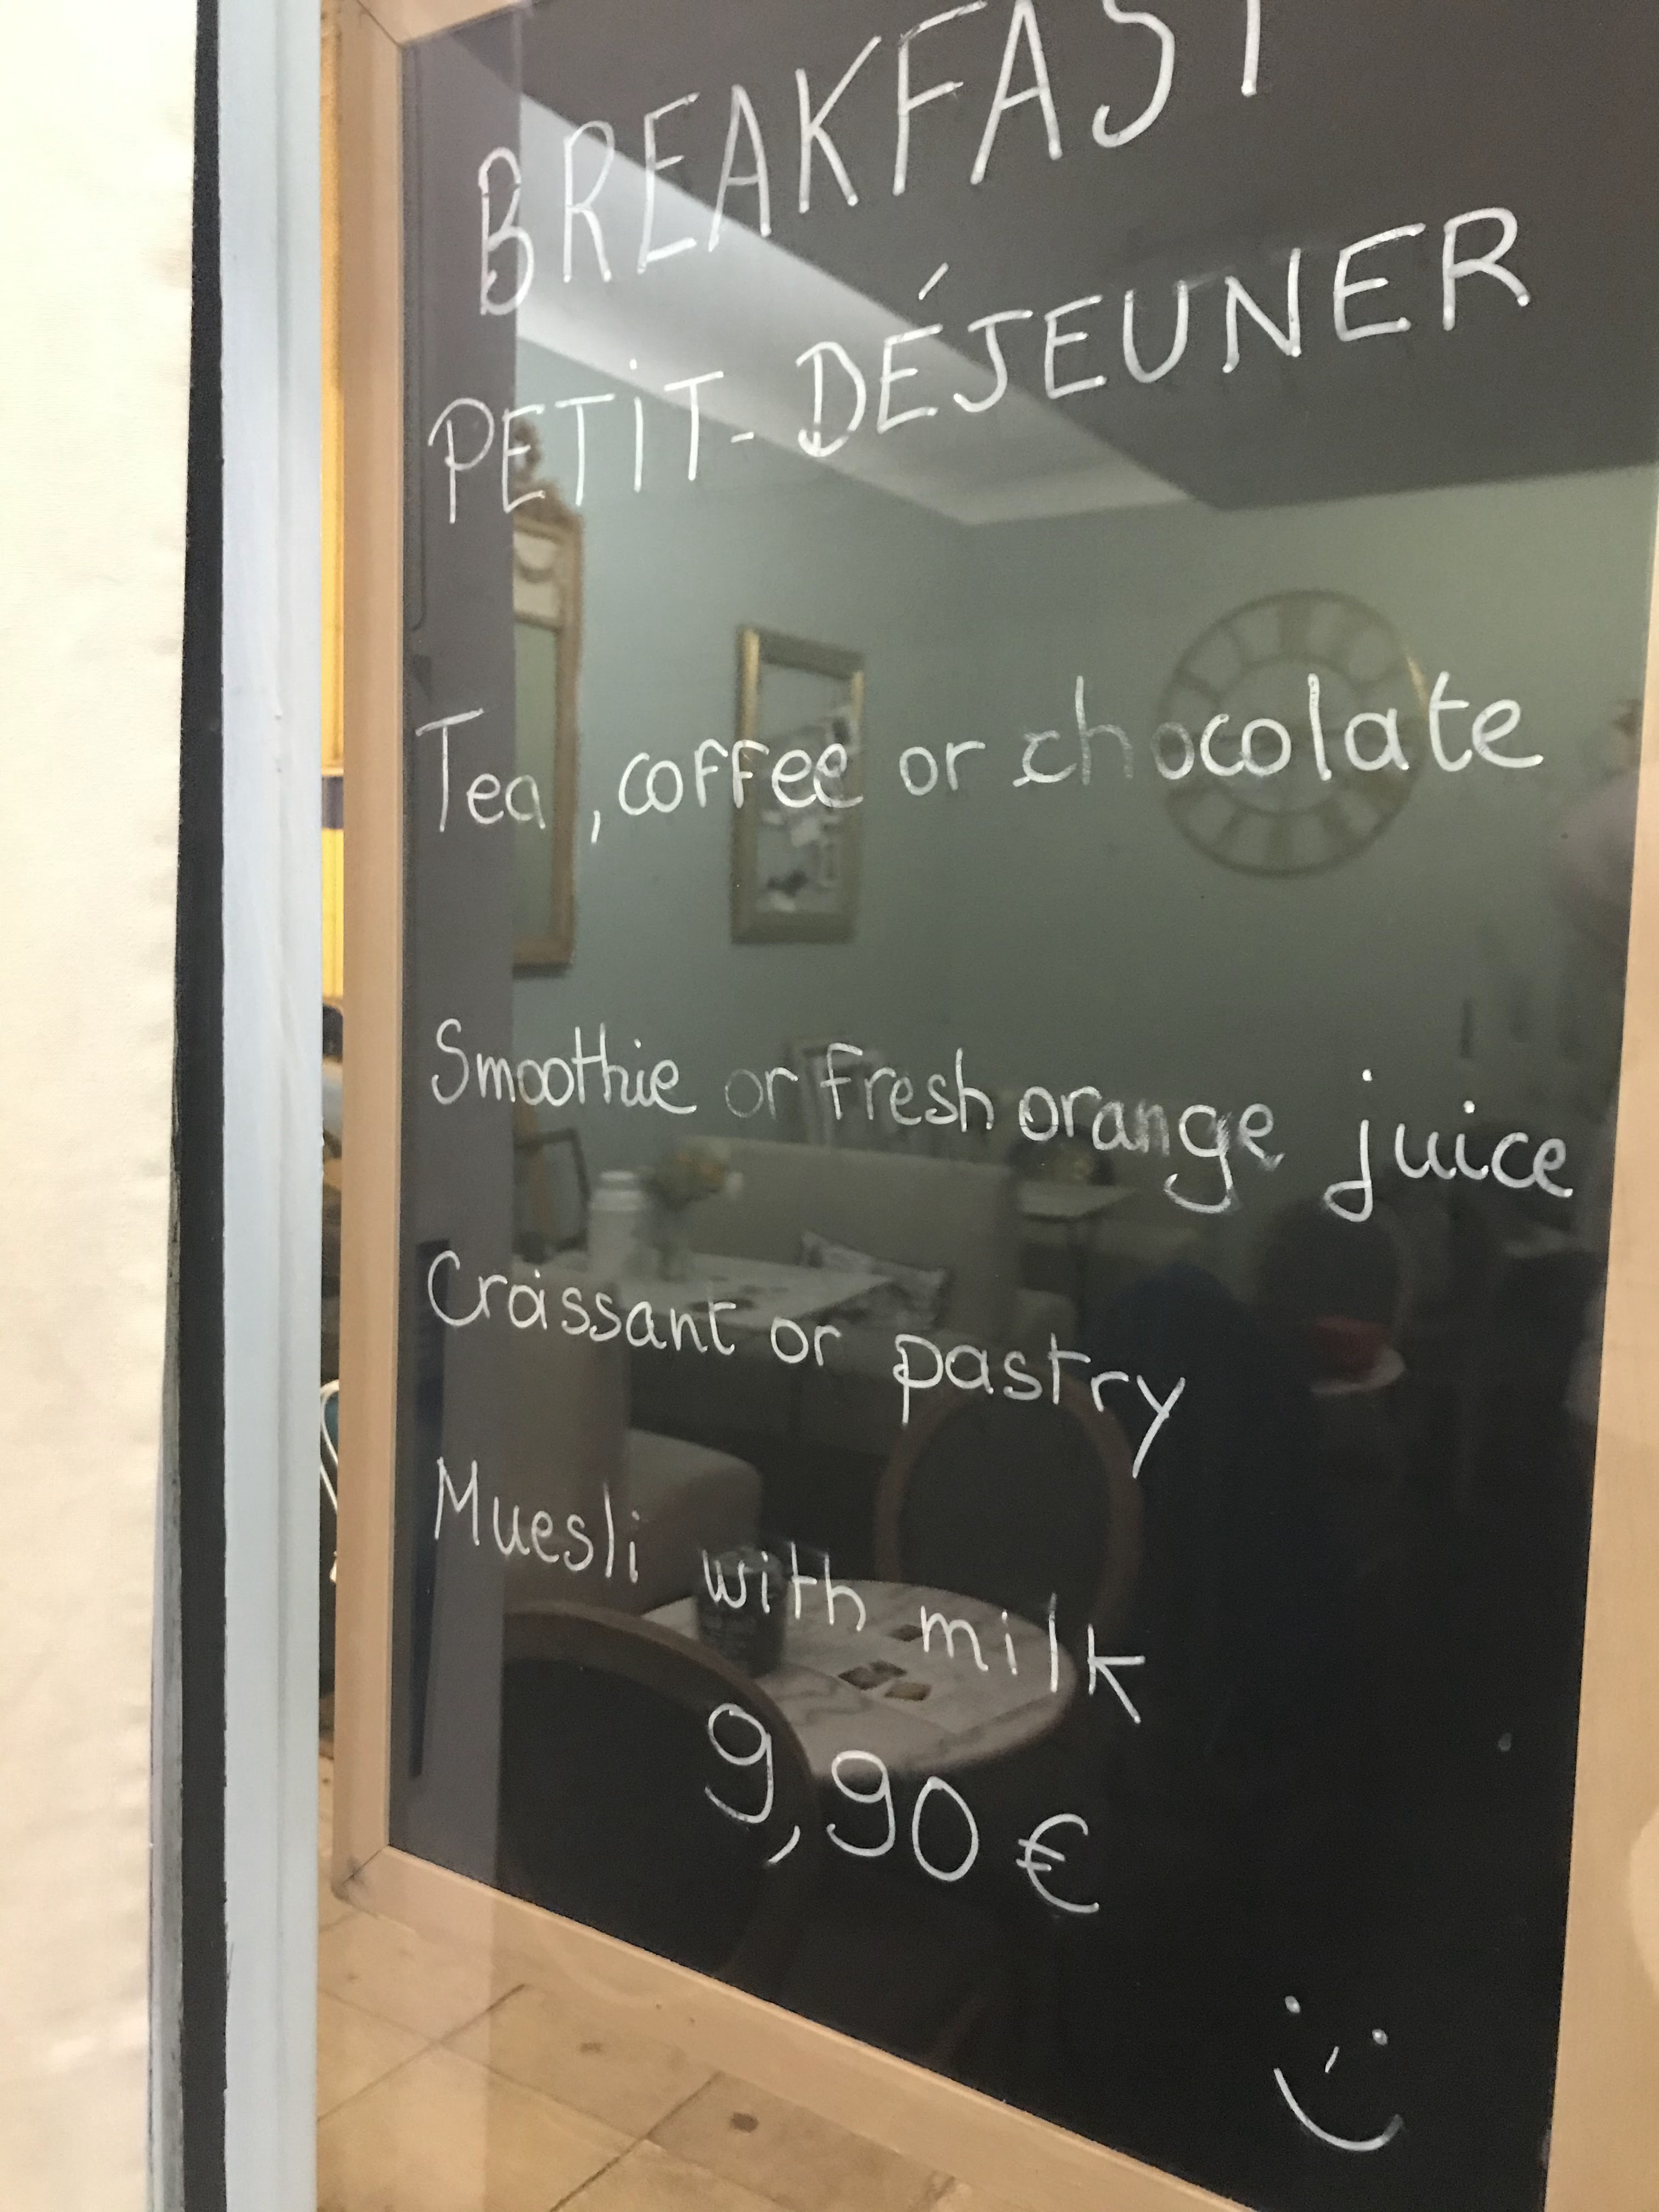 BREAKFAST
PETiT-DÉJEUNER
Tea, coffee or chocolate
Smoothie or fresh orange juice
Croissant or pastry
Muesli with milk
9,90 €